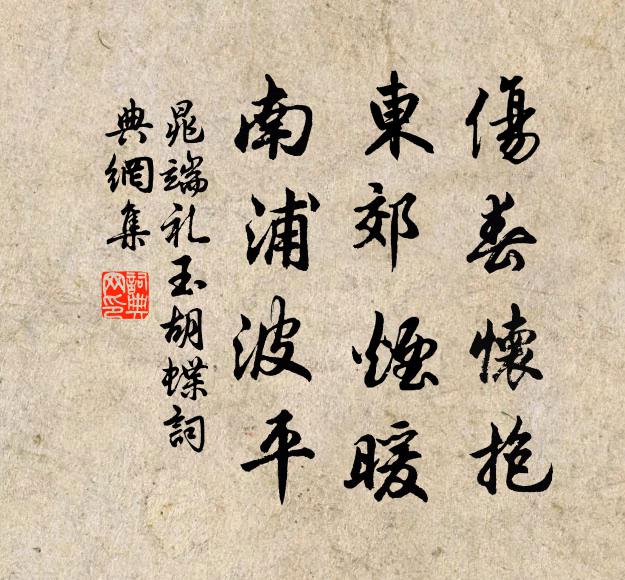 傷春懷抱
東郊煙暖
南浦波平
晁端礼玉胡蝶詞
典網集
詞典网印